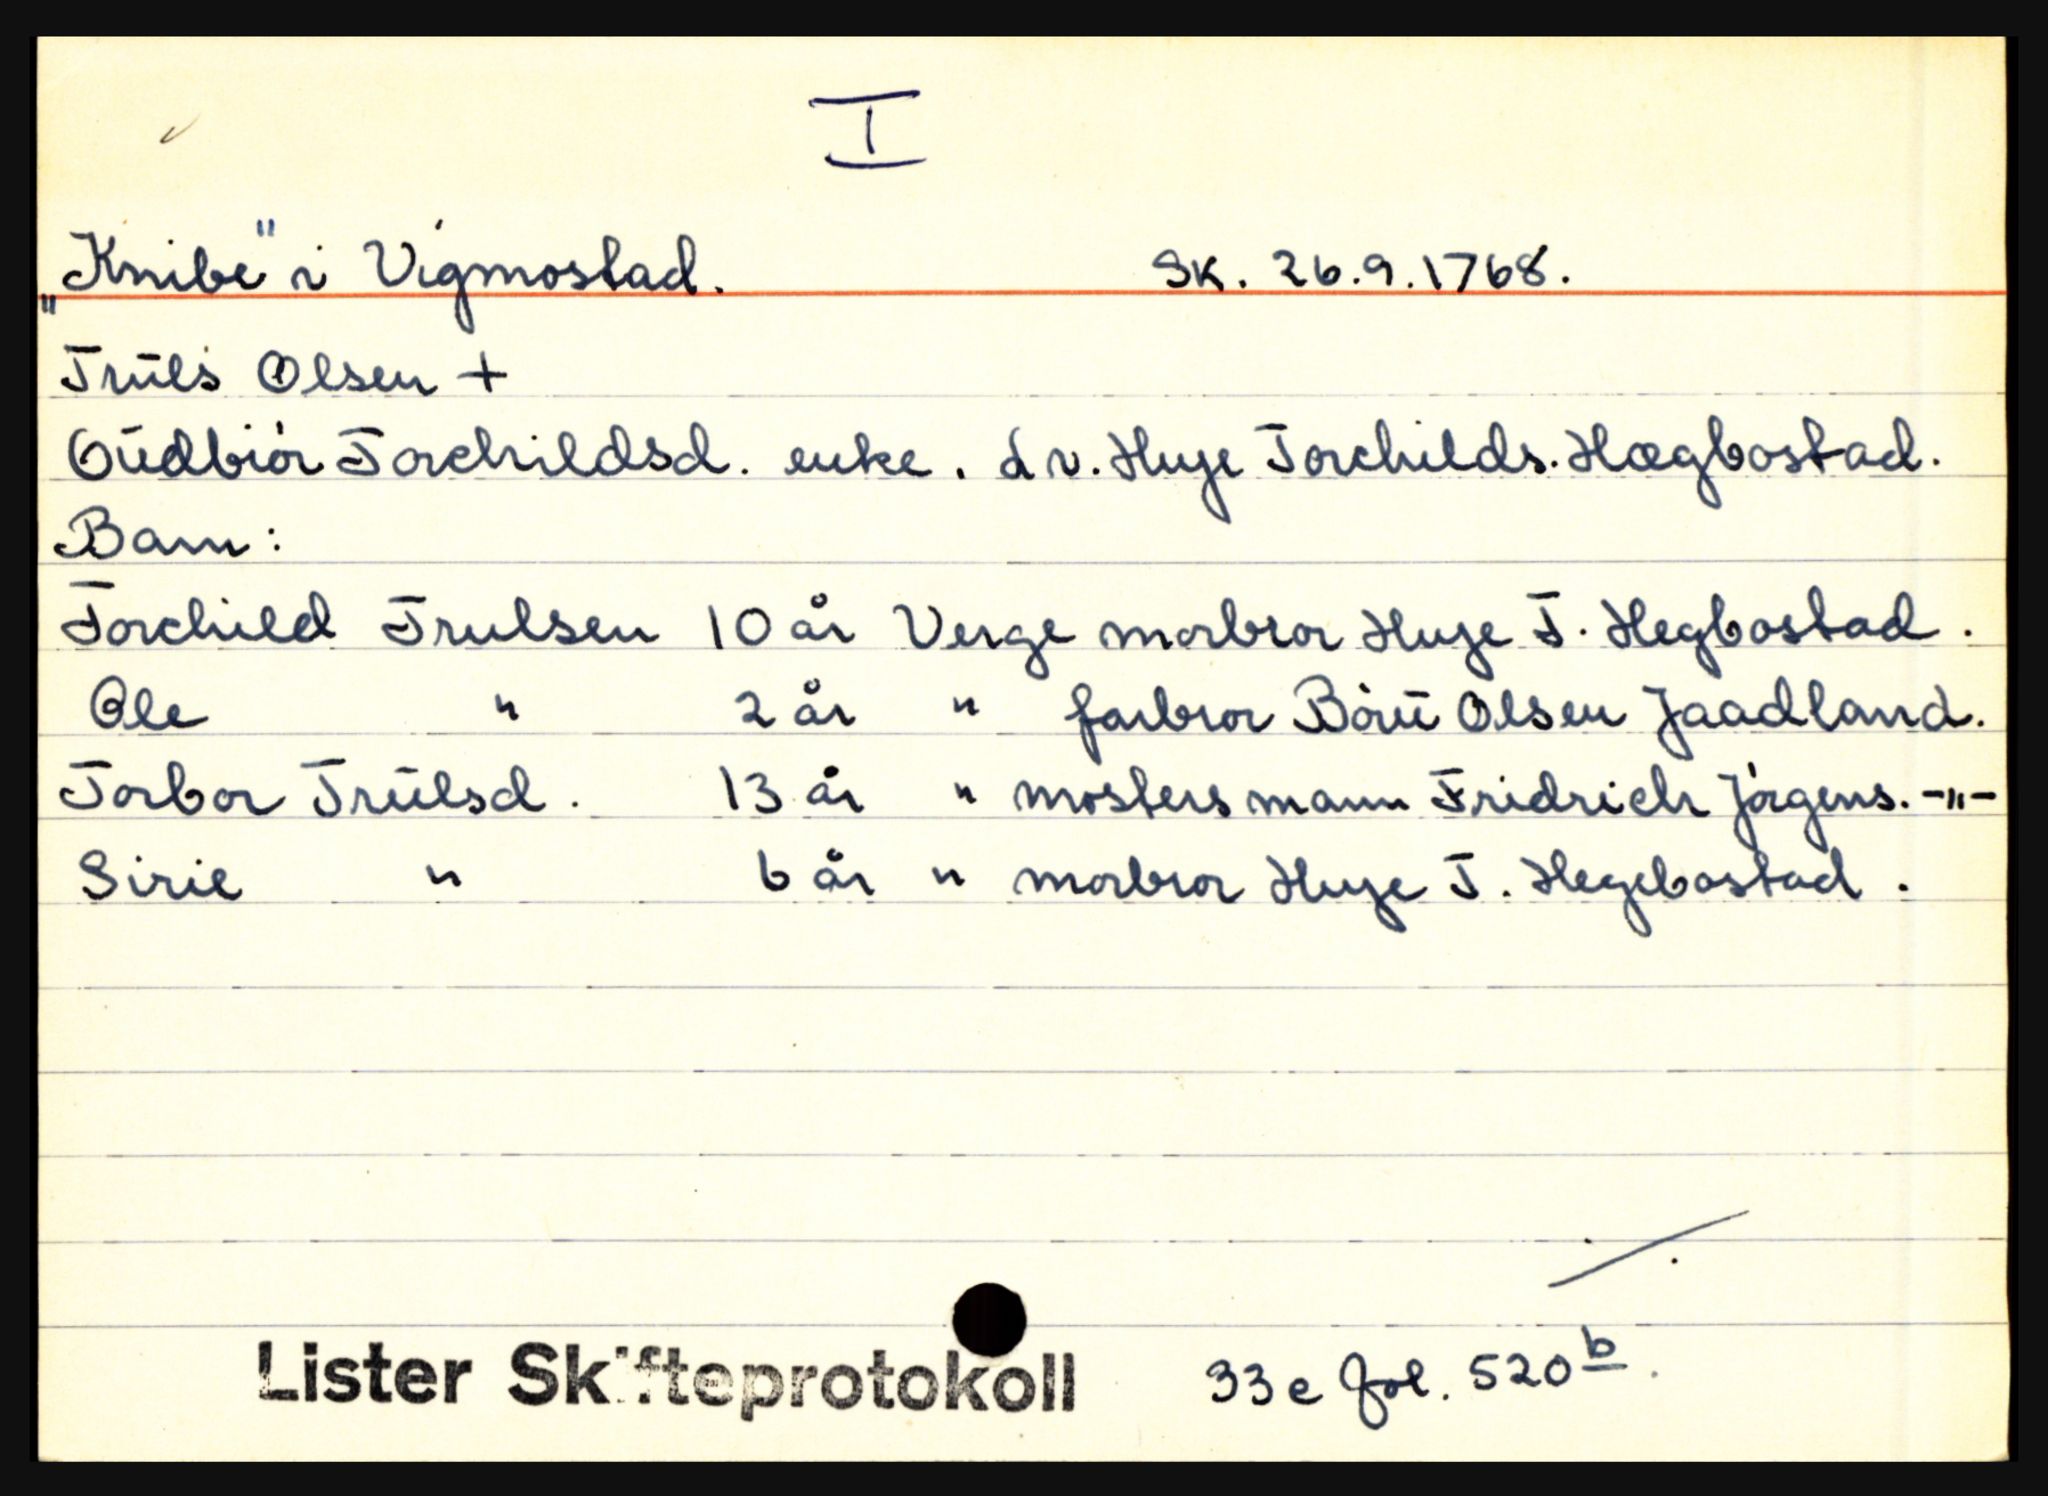 I
"Knibe" i Vigmostad. Sk. 26.9.1768.
Truls Olsen +
Gudbiör Torchildsd. enke. d v. Huje Torchilds. Hægbostad.
Barn:
Torchild Trulsen 10 år Verge morbror Huje T. Hegbostad.
Ole " 2 år " farbror Börü Olsen Jaadland.
Torbor Trulsd. 13 år " mosters mann Fridrich Jörgens. -"-
Sirie " 6 år " morbror Huje T. Hegebostad.
Lister Skifteprotokoll 33 c fol. 520 b.